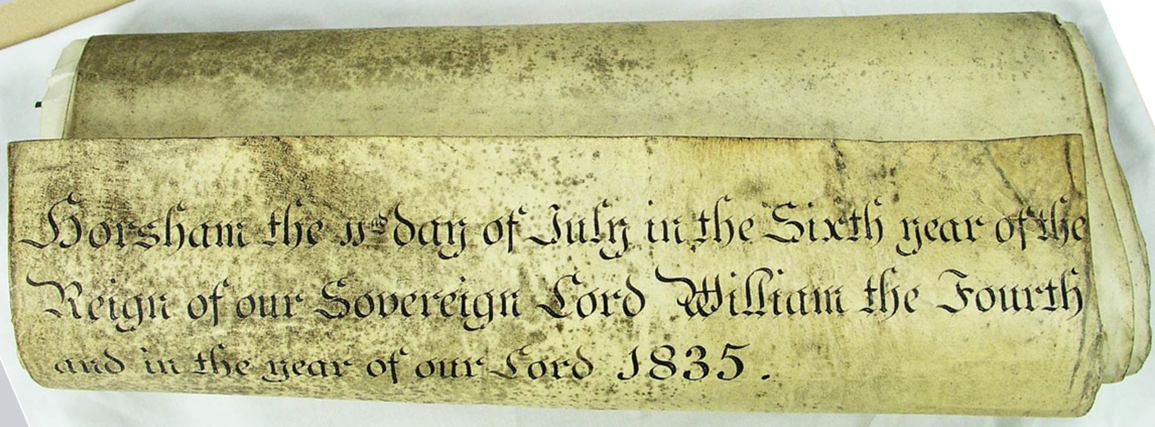 Horsham the 11th day of July in the Sixth year of the
Reign of our Sovereign Lord William the Fourth
and in the year of our Lord 1835.